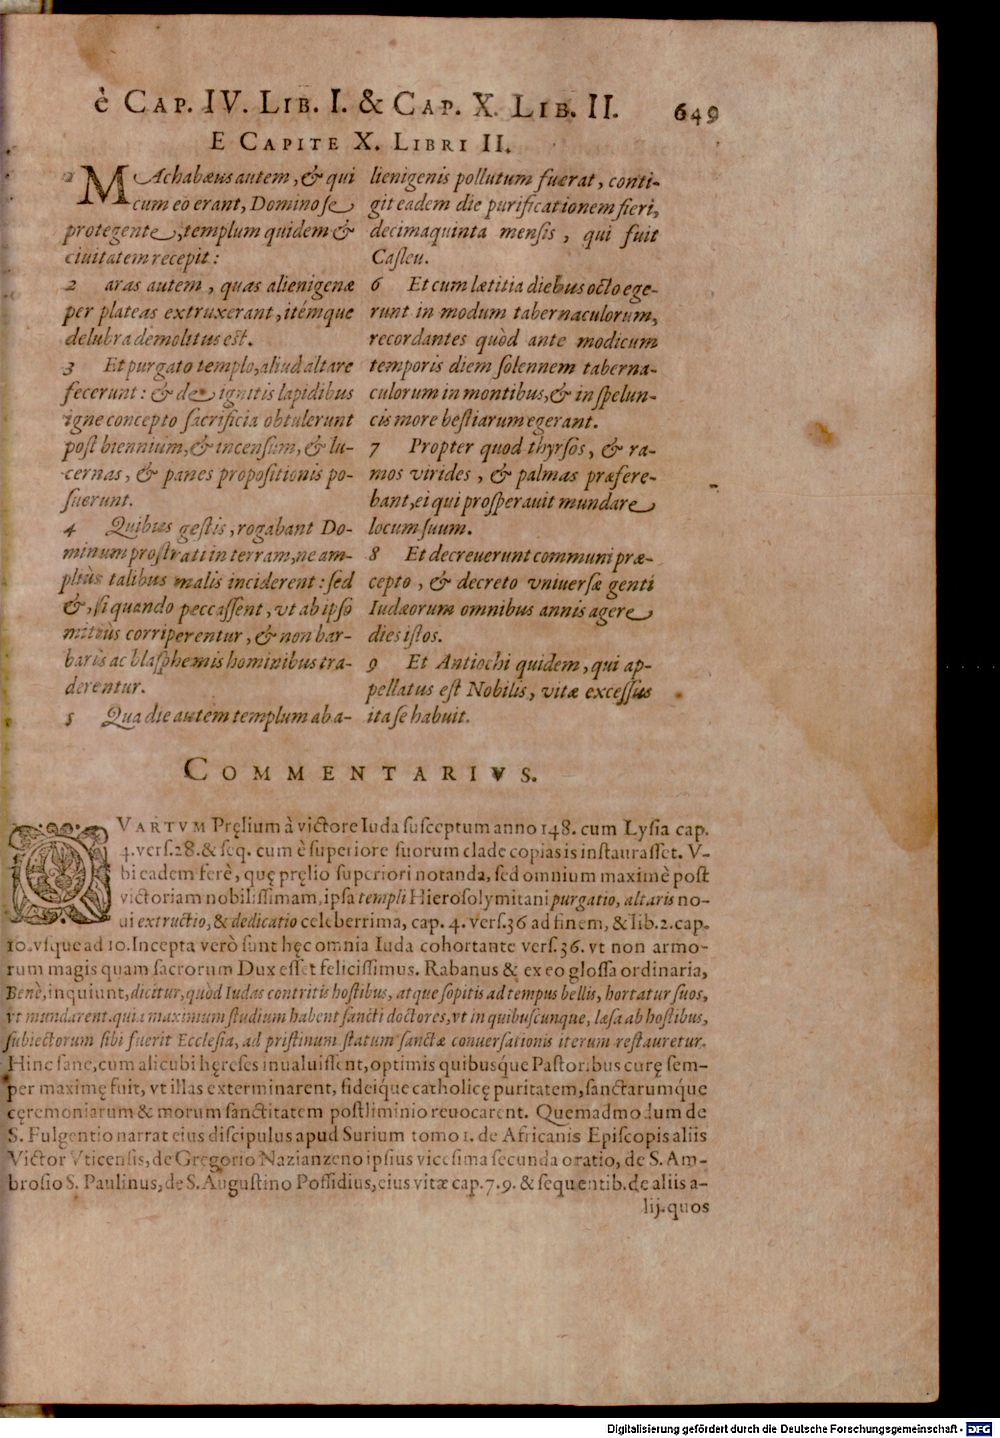 è CAP. IV. LIB. I. & CAP. X. LIB. II. 649
E CAPITE X. LIBRI II.
MAchabæus autem, & qui
cum eo erant, Domino se
protegente, templum quidem &
ciuitatem recepit:
2 aras autem, quas alienigenæ
per plateas extruxerant, itémque
delubra demolitus est.
3 Et purgato templo, aliud altare
fecerunt: & de ignitis lapidibus
igne concepto sacrificia obtulerunt
post biennium, & incensum, & lu-
cernas, & panes propositionis po-
suerunt.
4 Quibus gestis, rogabant Do-
minum prostrati in terram, ne am-
pliùs talibus malis inciderent: sed
&, si quando peccassent, vt ab ipso
mitiùs corriperentur, & non bar-
baris ac blasphemis hominibus tra-
derentur.
5 Qua die autem templum ab a-
lienigenis pollutum fuerat, conti-
git eadem die purificationem fieri,
decimaquinta mensis, qui fuit
Casleu.
6 Et cum lætitia diebus octo ege-
runt in modum tabernaculorum,
recordantes quòd ante modicum
temporis diem solennem taberna-
culorum in montibus, & in spelun-
cis more bestiarum egerant.
7 Propter quod thyrsos, & ra-
mos virides, & palmas præfere-
bant, ei qui prosperauit mundare
locum suum.
8 Et decreuerunt communi præ-
cepto, & decreto vniuersæ genti
Iudæorum omnibus annis agere
dies istos.
9 Et Antiochi quidem, qui ap-
pellatus est Nobilis, vitæ excessus
ita se habuit.
COMMENTARIVS.
QVARTVM Pręlium à victore Iuda susceptum anno 148. cum Lysia cap.
4. vers. 28. & seq. cum è superiore suorum clade copias is instaurasset. V-
bi eadem ferè, quę pręlio superiori notanda, sed omnium maximè post
victoriam nobilissimam, ipsa templi Hierosolymitani purgatio, altaris no-
ui extructio, & dedicatio celeberrima, cap. 4. vers. 36 ad finem, & lib. 2. cap.
10. vsque ad 10. Incepta verò sunt hęc omnia Iuda cohortante vers. 36. vt non armo-
rum magis quam sacrorum Dux esset felicissimus. Rabanus & ex eo glossa ordinaria,
Benè, inquiunt, dicitur, quòd Iudas contritis hostibus, atque sopitis ad tempus bellis, hortatur suos,
vt mundarent. quia maximum studium habent sancti doctores, vt in quibuscunque, læsa ab hostibus,
subiectorum sibi fuerit Ecclesia, ad pristinum statum sanctæ conuersationis iterum restauretur.
Hinc sane, cum alicubi hęreses inualuissent, optimis quibusque Pastoribus curę sem-
per maximę fuit, vt illas exterminarent, fideique catholicę puritatem, sanctarumque
cęremoniarum & morum sanctitatem postliminio reuocarent. Quemadmodum de
S. Fulgentio narrat eius discipulus apud Surium tomo 1. de Africanis Episcopis aliis
Victor Vticensis, de Gregorio Nazianzeno ipsius vicesima secunda oratio, de S. Am-
brosio S. Paulinus, de S. Augustino Possidius, eius vitæ cap. 7. 9. & sequentib. de aliis a-
lij. quos
Digitalisierung gefördert durch die Deutsche Forschungsgemeinschaft - DFG